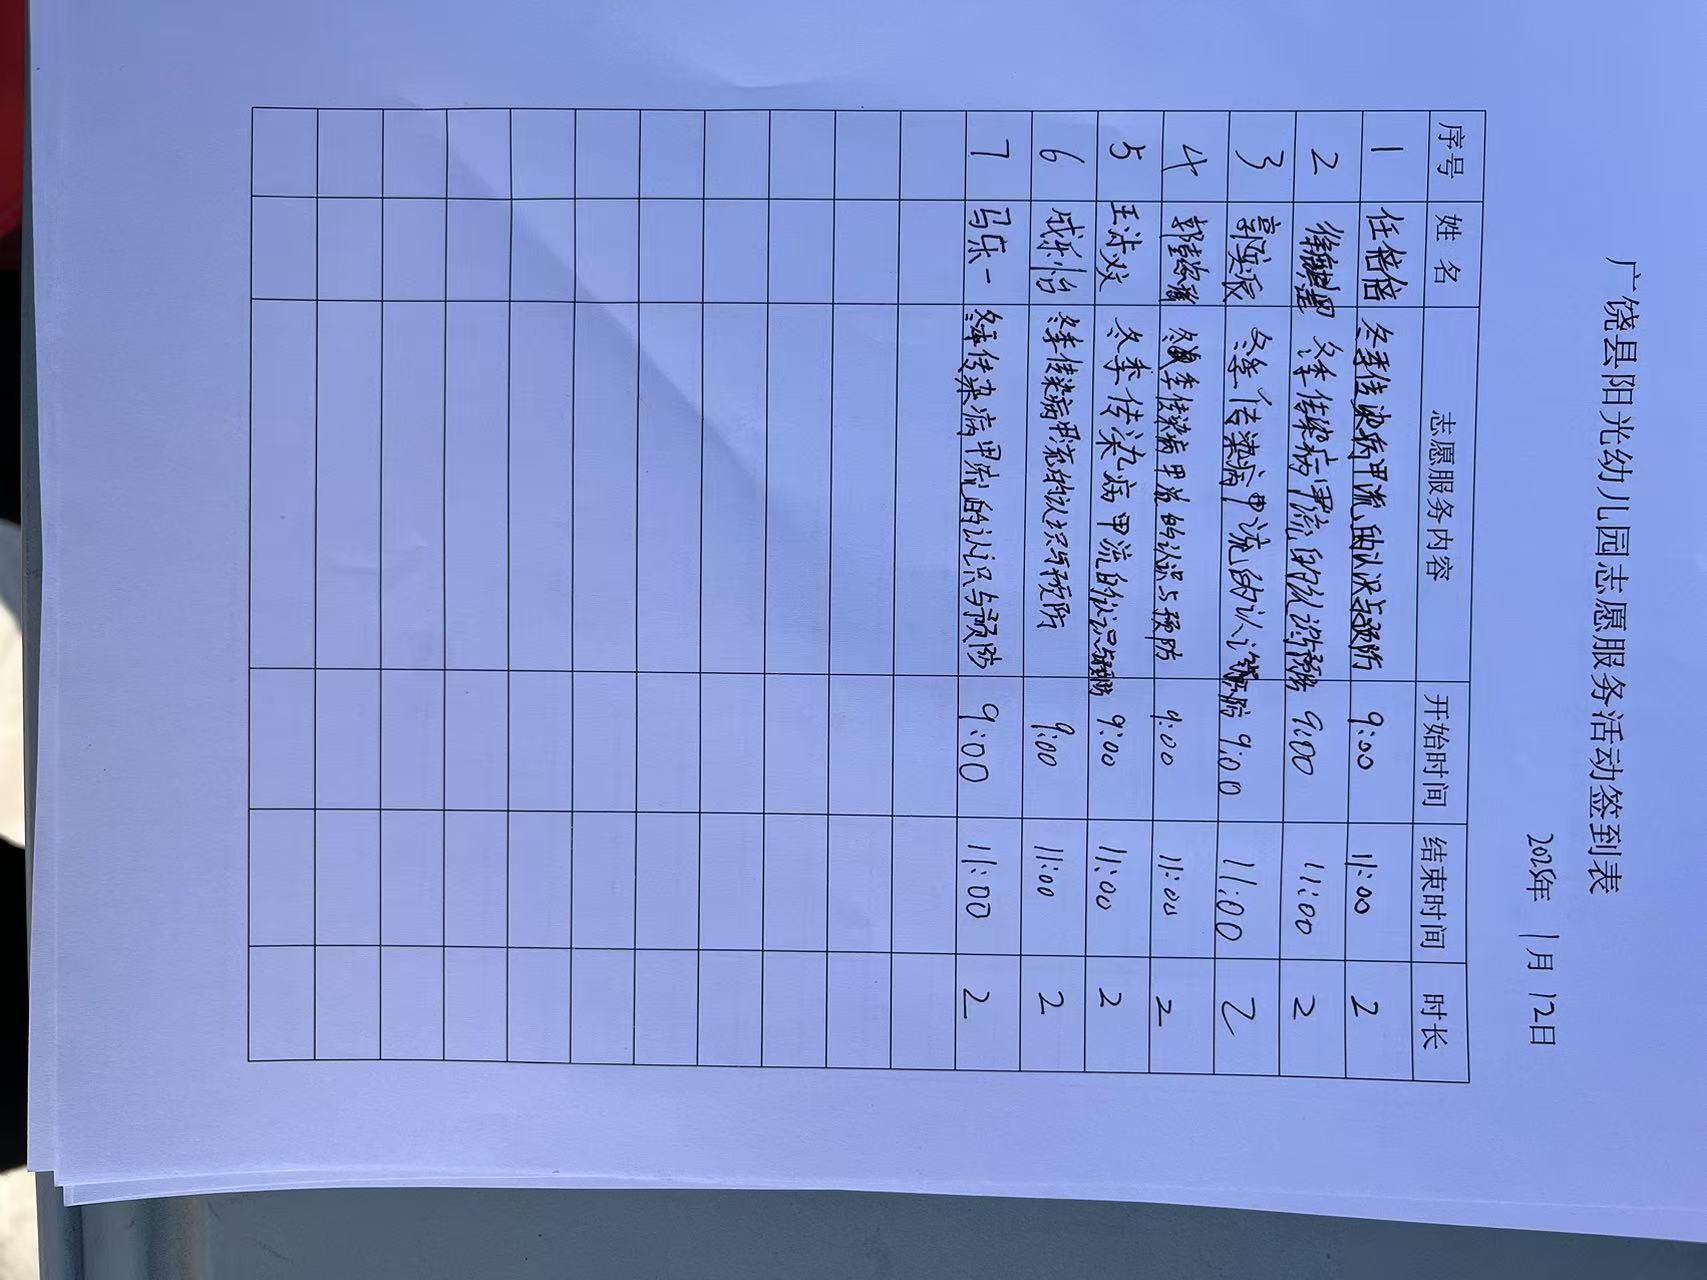 广饶县阳光幼儿园志愿服务活动签到表
2025年 1月 12日
序号 姓 名 志愿服务内容 开始时间 结束时间 时长
1 任倍倍 冬季传染病甲流的认识与预防 9:00 11:00 2
2 冬季传染病甲流的认识与预防 9:00 11:00 2
3 冬季传染病甲流的认识与预防 9:00 11:00 2
4 冬季传染病甲流的认识与预防 9:00 11:00 2
5 冬季传染病甲流的认识与预防 9:00 11:00 2
6 成乐怡 冬季传染病甲流的认识与预防 9:00 11:00 2
7 马乐一 冬季传染病甲流的认识与预防 9:00 11:00 2